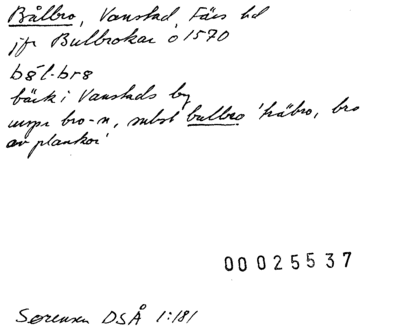 Bålbro, Vanstad, Färs hd
jfr Bulbrokar o 1570
bål-brø
bäck i Vanstads by
urspr bro-n, subst bulbro 'träbro, bro
av plankor'
00025537
Sørensen DSÅ 1:181